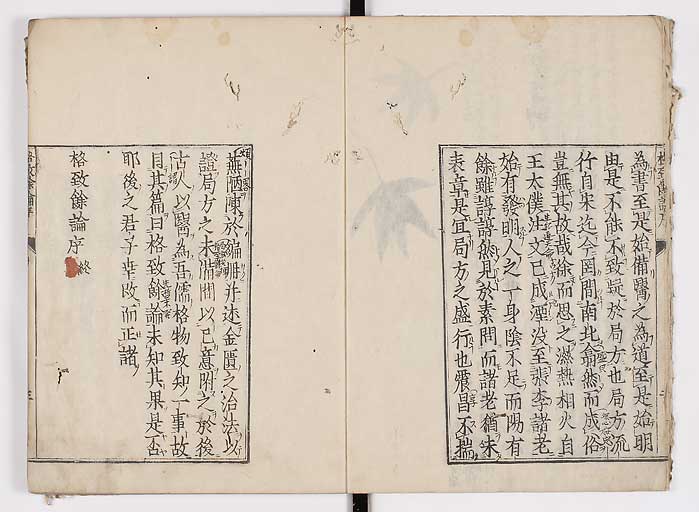 為書至是始備醫之為道至是始明
由是不能不致疑於局方也局方流
行自宋迄今罔間南北翕然而成俗
豈無其故哉徐而思之濕熱相火自
王太僕注文已成湮没至張李諸老
始有發明人之一身陰不足而陽有
餘雖諄諄然見於素問而諸老猶未
表章是宜局方之盛行也震昌不揣
蕪陋陳於編册并述金匱之治法以
證局方之未備間以己意附之於後
古人以醫為吾儒格物致知一事故
目其篇曰格致餘論未知其果是否
耶後之君子幸改而正諸
格致餘論序 終